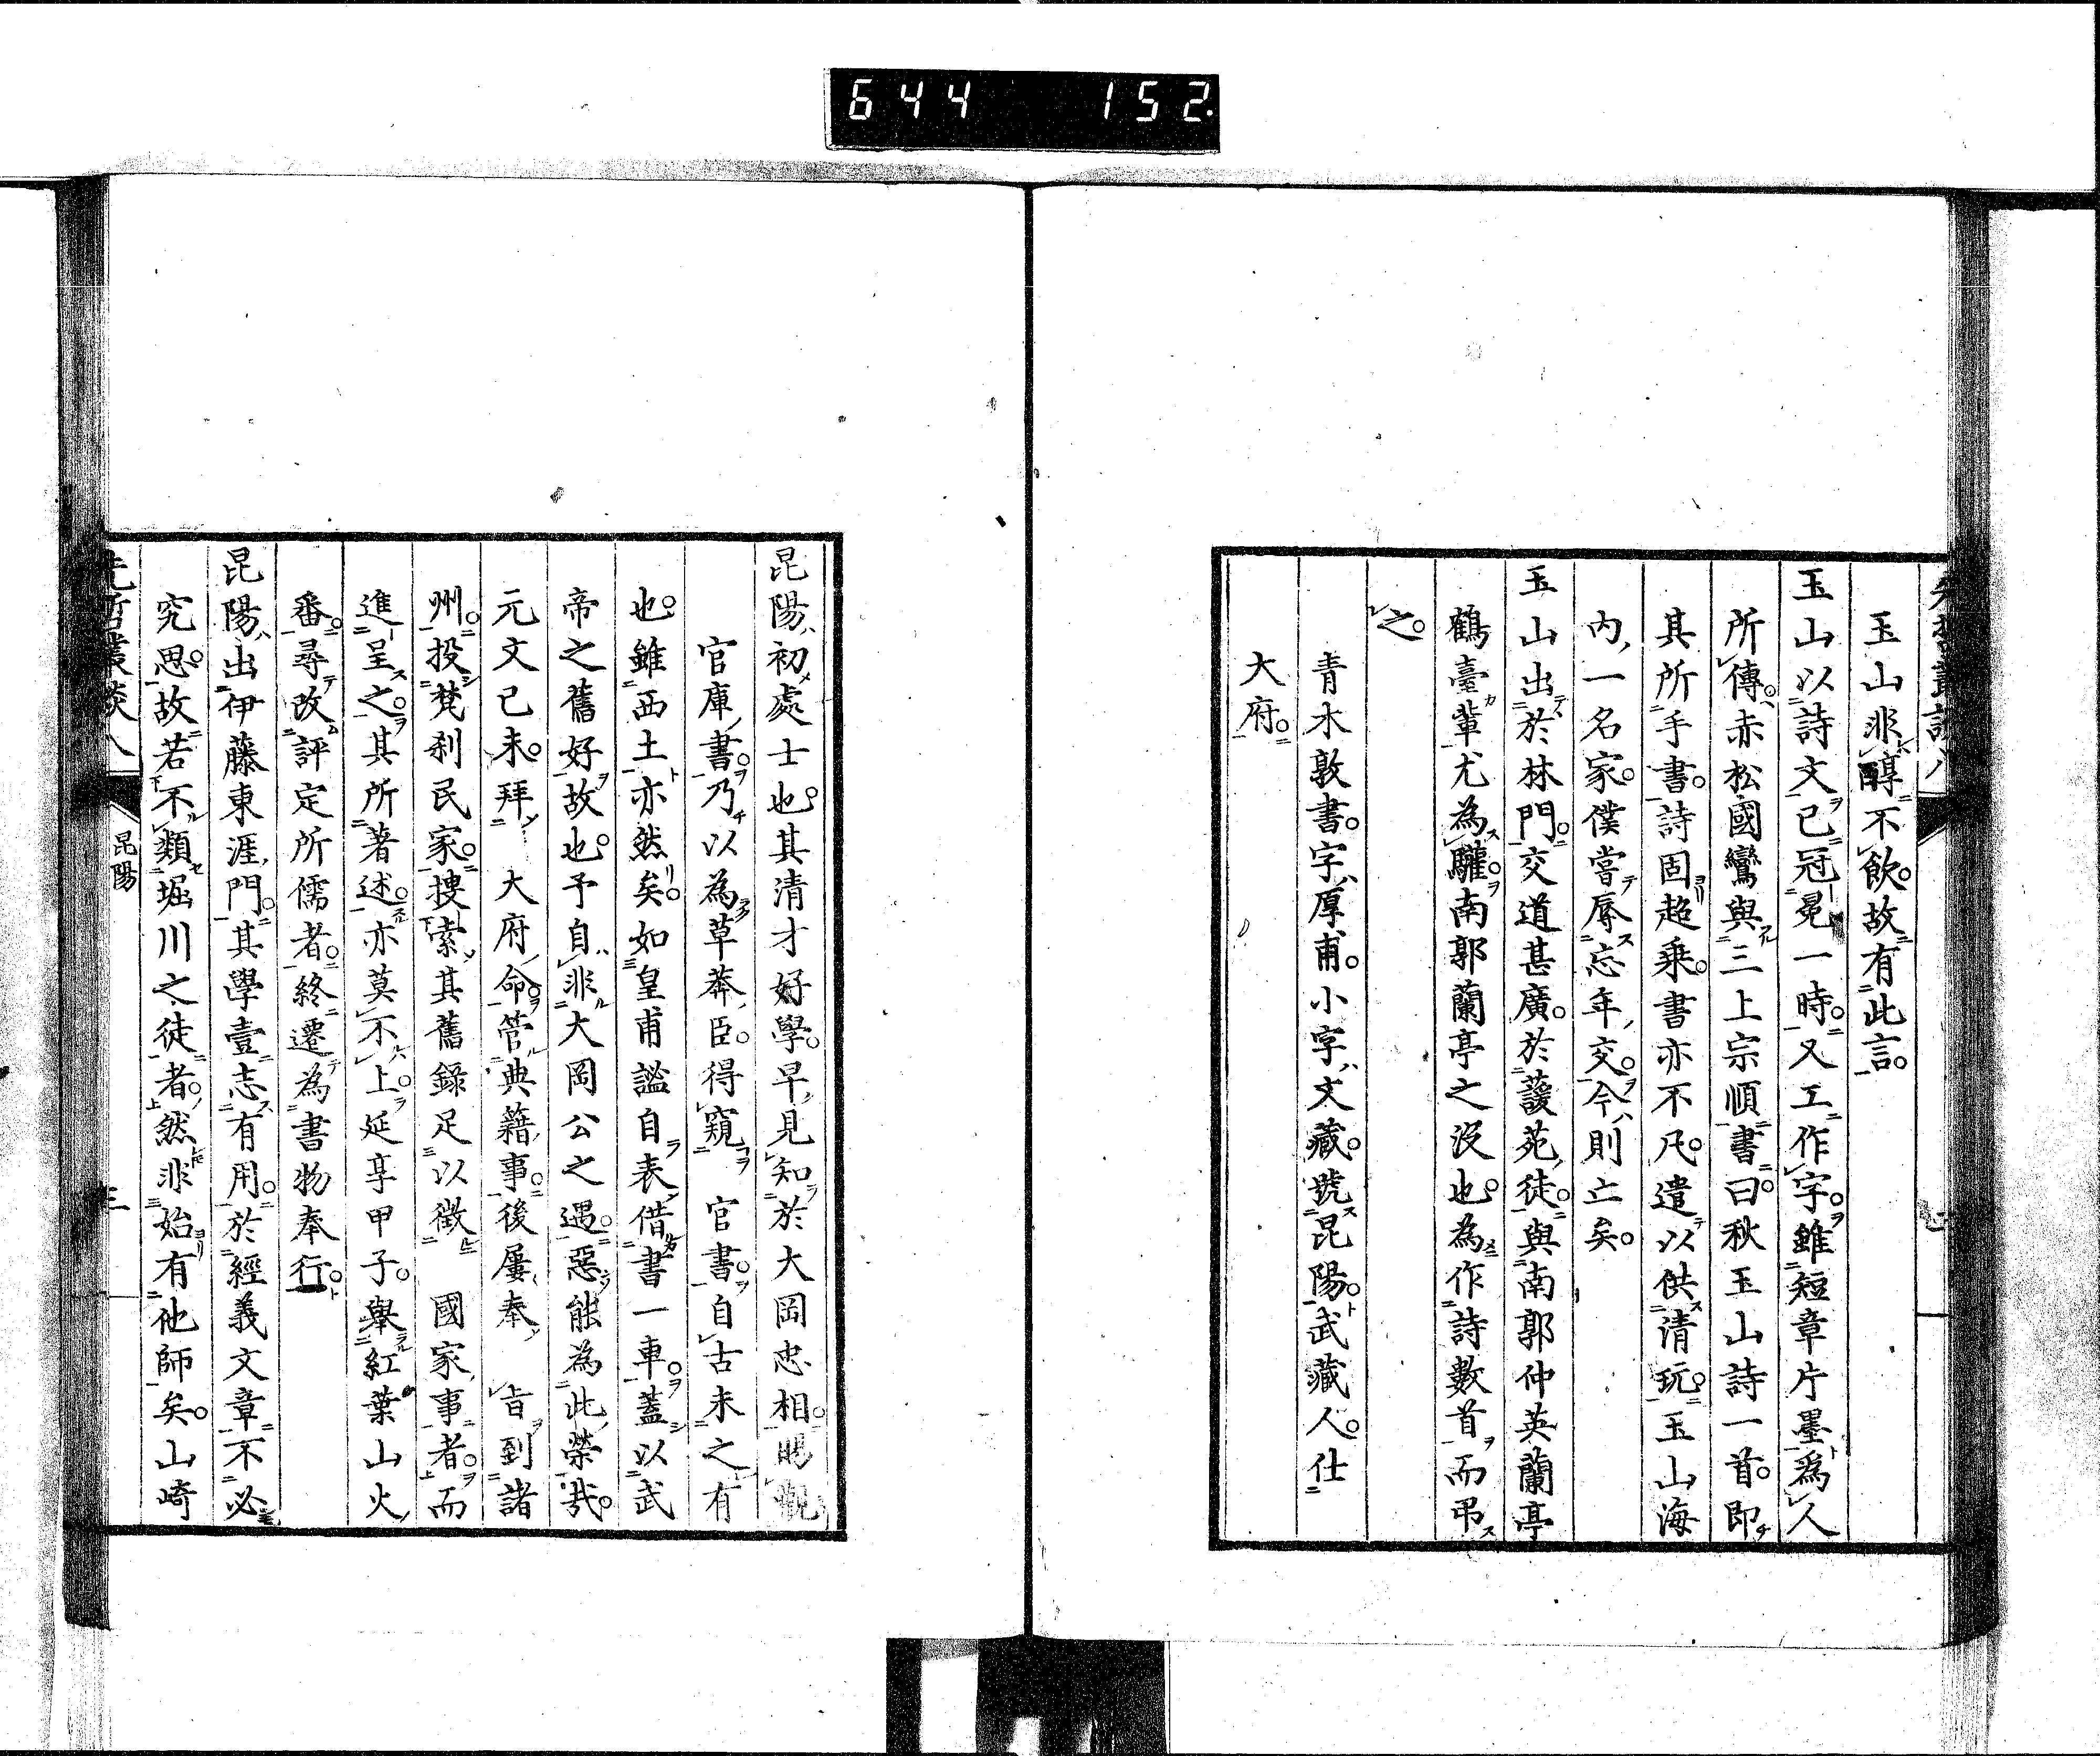 644 152.
玉山非醇不飲故有此言
玉山以詩文已冠冕一時又工作字雖短章片墨爲人
所傳赤松國鸞與三上宗順書曰秋玉山詩一首即
其所手書詩固超乗書亦不凡遣以供清玩玉山海
内一名家僕嘗辱忘年交今則亡矣
玉山出於林門交道甚廣於蘐苑徒與南郭仲英蘭亭
鶴臺輩尤為驩南郭蘭亭之没也為作詩數首而弔
之
青木敦書字厚甫小字文藏號昆陽武藏人仕
大府
昆陽初處士也其清才好學早見知於大岡忠相賜觀
官庫書乃以為草莽臣得窺 官書自古未之有
也雖西土亦然矣如皇甫謐自表借書一車蓋以武
帝之舊好故也予自非大岡公之遇惡能為此榮哉
元文已未拜 大府命管典籍事後屢奉 旨到諸
州投梵刹民家捜索其舊錄足以徴 國家事者而
進呈之其所著述亦莫不上延享甲子舉紅葉山火
番尋改評定所儒者終遷為書物奉行
昆陽出伊藤東涯門其學壹志有用於經義文章不必
究思故若不類堀川之徒者然非始有他師矣山崎
先哲叢談八 昆陽 三